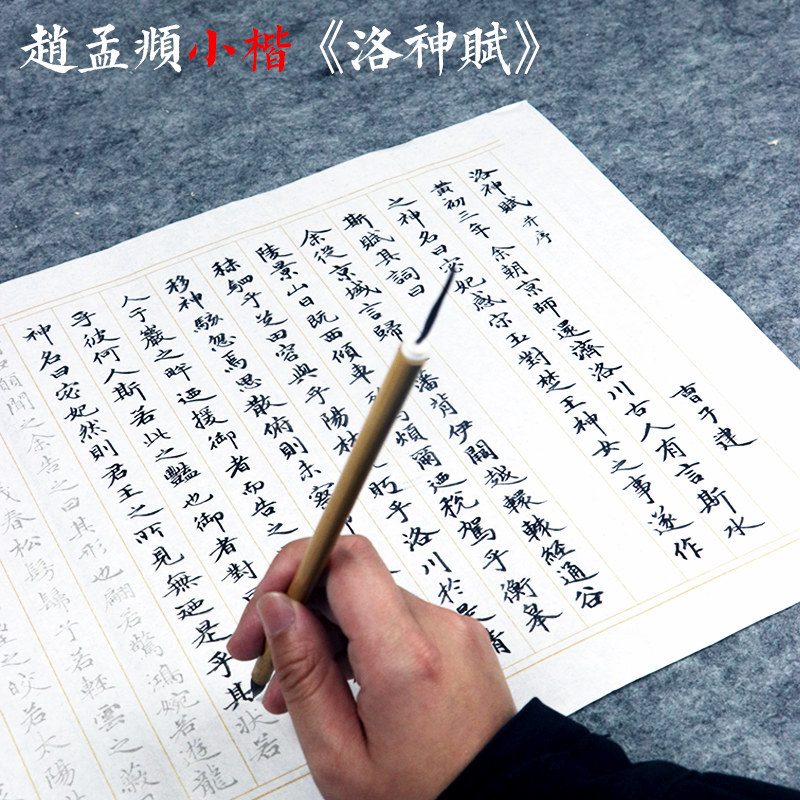 趙孟頫小楷《洛神賦》
洛神賦 并序 曹子建
黃初三年余朝京師還濟洛川古人有言斯水
之神名曰宓妃感宋玉對楚王神女之事遂作
斯賦其詞曰
余從京域言歸藩背伊闕越轘轅經通谷
陵景山日既西傾車馬煩爾迺稅駕乎衡皋
秣駟乎芝田容與乎陽林眄乎洛川於是精
移神駭忽焉思散俯則未察
人于巖之畔迺援御者而告之
乎彼何人斯若此之豔也御者對
神名曰宓妃然則君王之所見無迺是乎其狀若
願聞之余告之曰其形也翩若驚鴻婉若遊龍
茂春松髣髴兮若輕雲之蔽
之皎若太陽